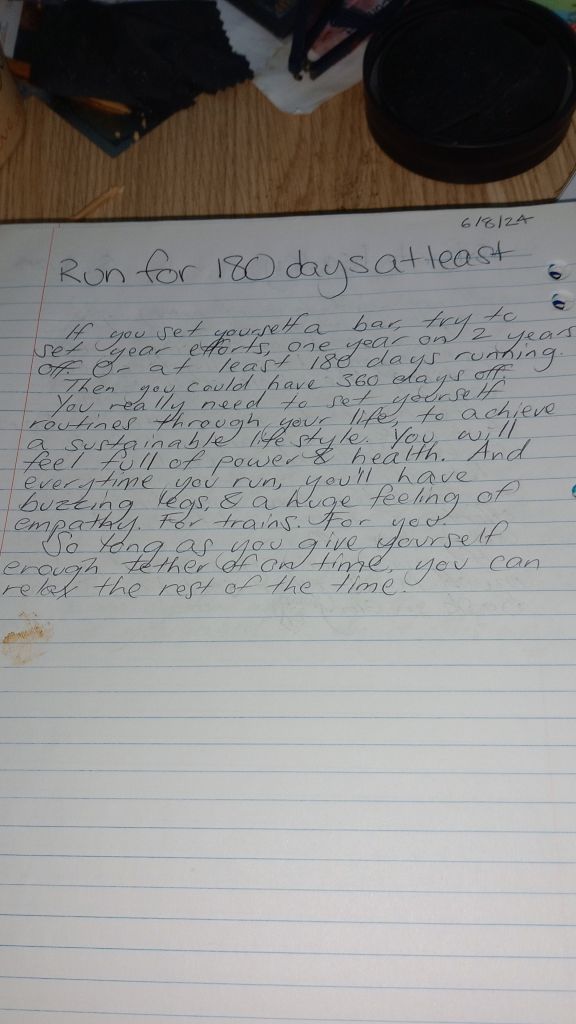 6/8/24
Run for 180 days at least
If you set yourself a bar, try to
set year efforts, one year on, 2 years
off. Or at least 180 days running.
Then you could have 360 days off.
You really need to set yourself
routines through your life, to achieve
a sustainable life style. You will
feel full of power & health. And
everytime you run, you'll have
buzzing legs, & a huge feeling of
empathy. For trains. For you.
So long as you give yourself
enough tether of on time, you can
relax the rest of the time.